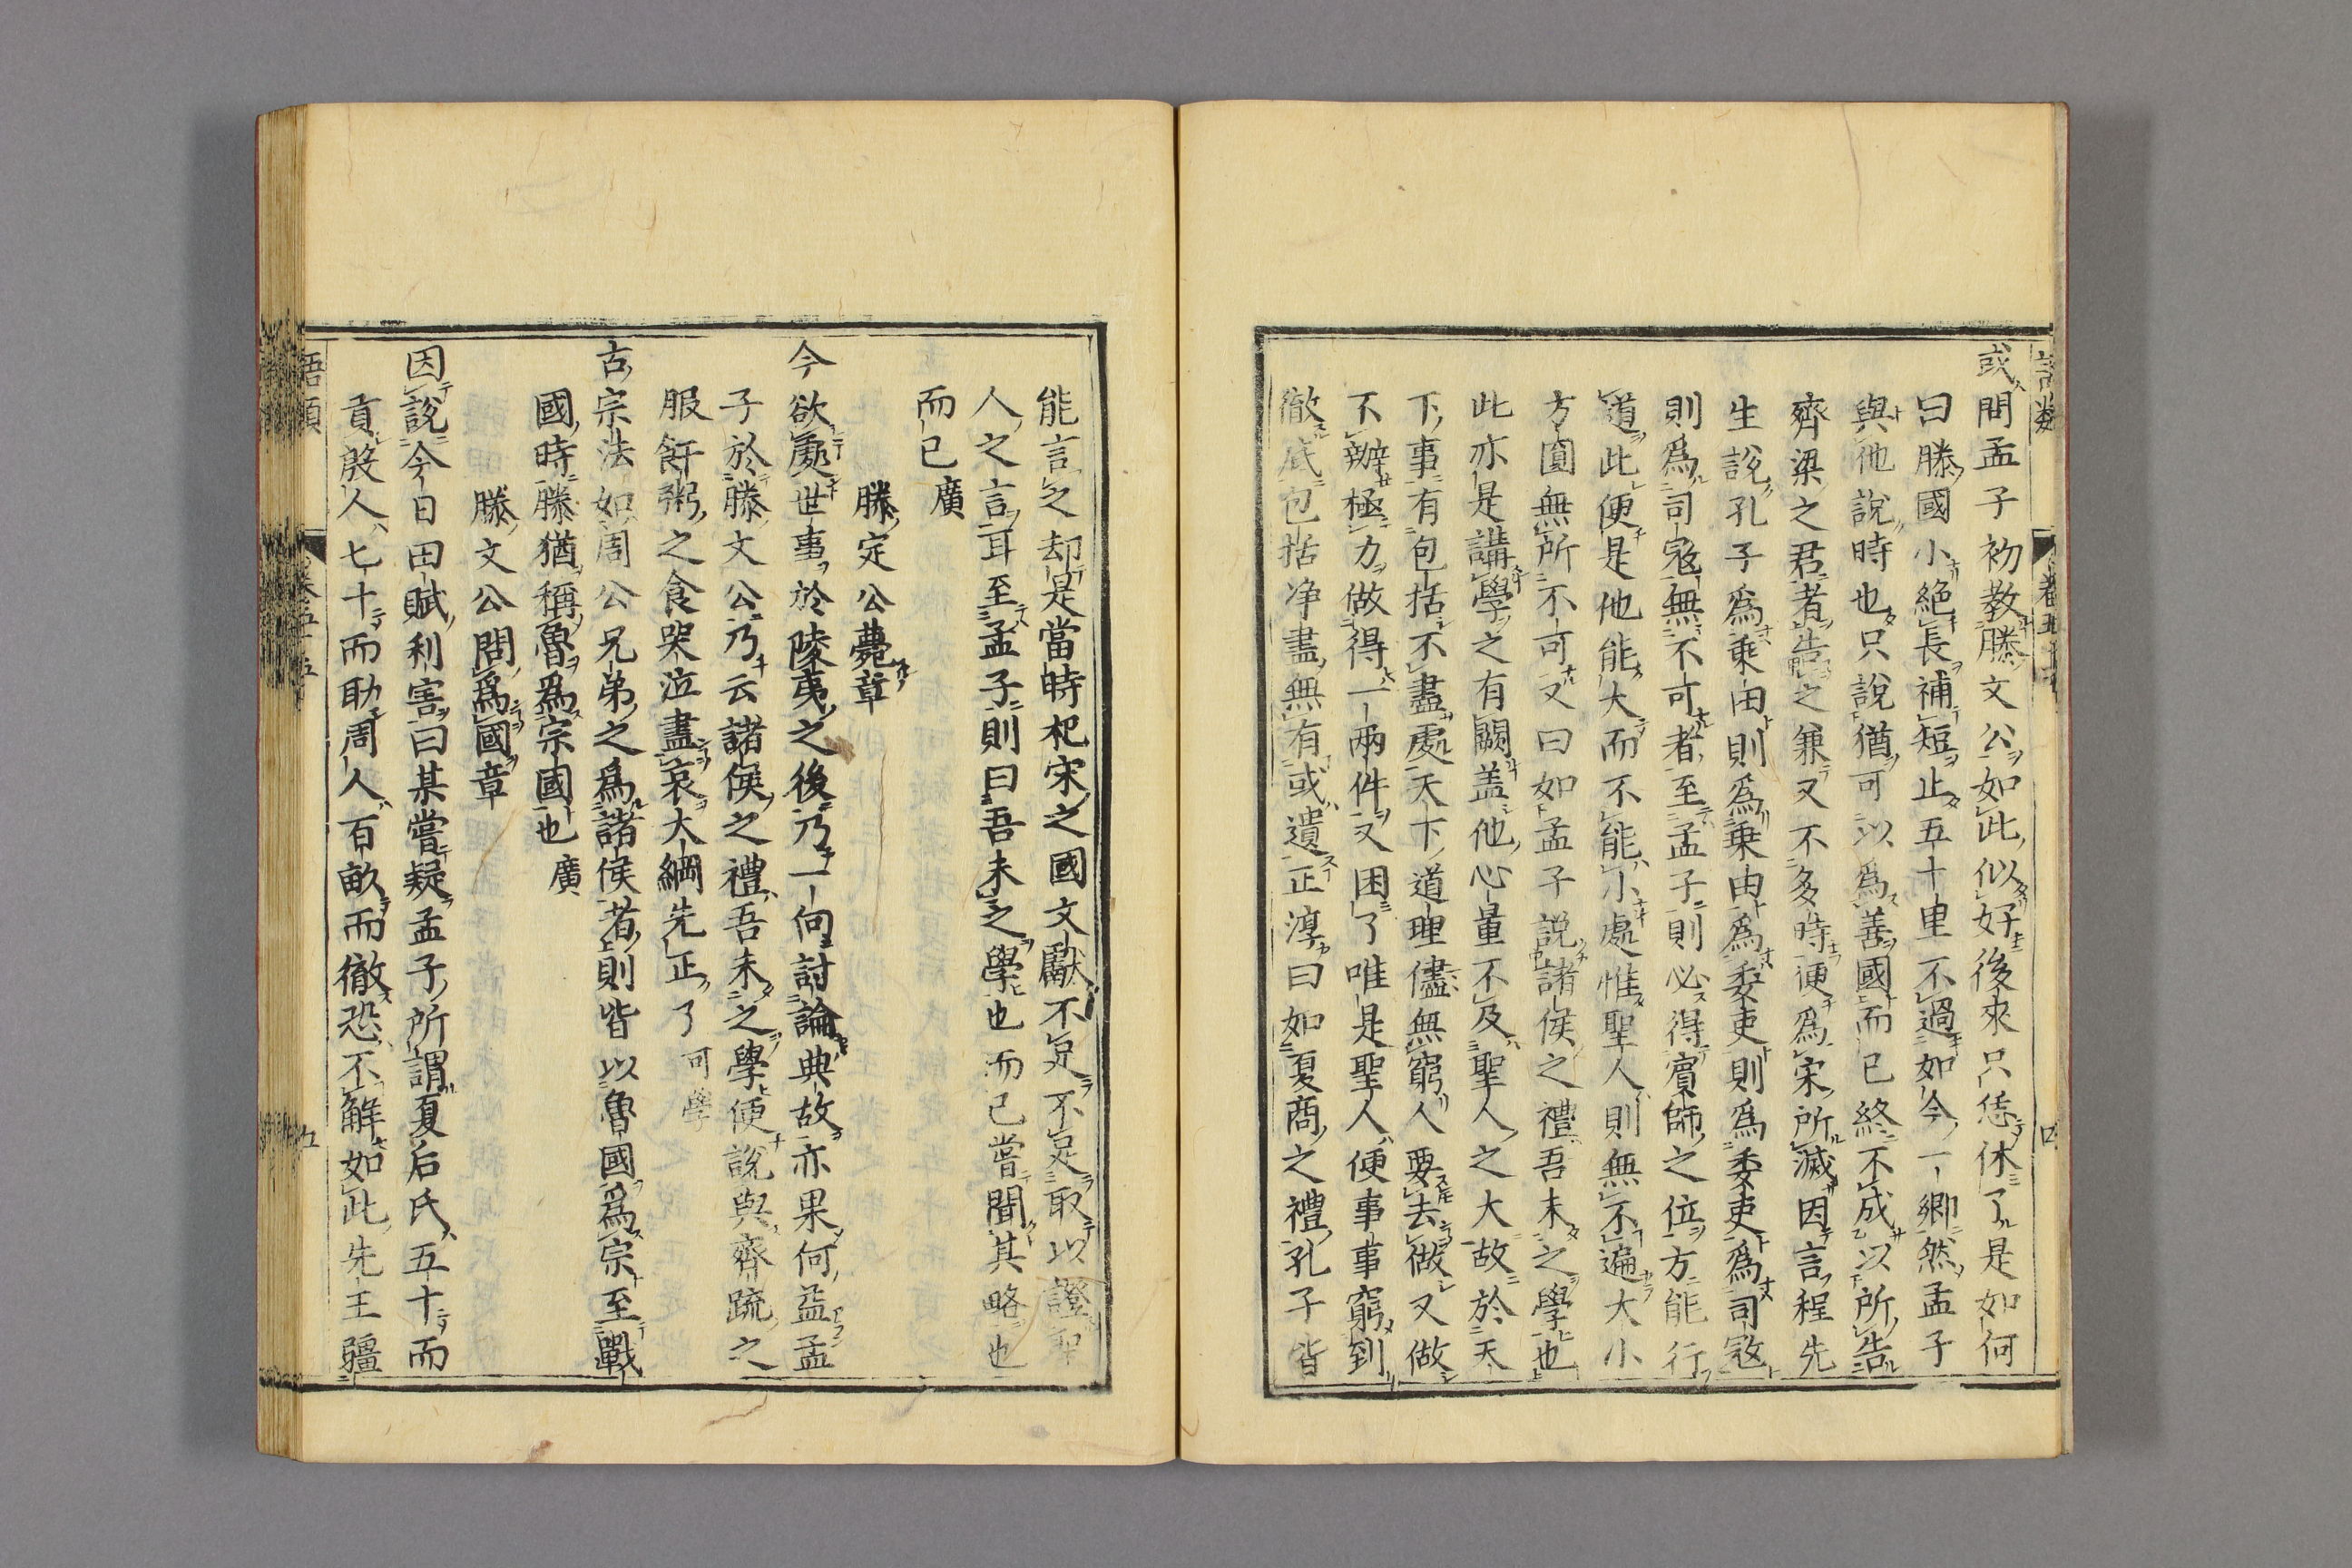 或問孟子初教滕文公如此似好後來只恁休了是如何
曰滕國小絶長補短止五十里不過如今一鄉然孟子
與他說時也只說猶可以爲善國而已終不成以所告
齊梁之君者告之兼又不多時便爲宋所滅因言程先
生說孔子爲乗田則爲乗田爲委吏則爲委吏爲司寇
則爲司寇無不可者至孟子則必得賓師之位方能行
道此便是他能大而不能小處惟聖人則無不遍大小
方圓無所不可又曰如孟子說諸侯之禮吾未之學也
此亦是講學之有闕盖他心量不及聖人之大故於天
下事有包括不盡處天下道理儘無窮人要去做又做
不辦極力做得一兩件又困了唯是聖人便事事窮到
徹底包括净盡無有或遺正淳曰如夏商之禮孔子皆
能言之却是當時杞宋之國文獻不足不足取以證聖
人之言耳至孟子則曰吾未之學也而已嘗聞其略也
而已 廣
滕定公薨章
今欲處世事於陵夷之後乃一向討論典故亦果何益孟
子於滕文公乃云諸侯之禮吾未之學便說與齊疏之
服飦粥之食哭泣盡哀大綱先正了 可學
古宗法如周公兄弟之爲諸侯者則皆以魯國爲宗至戰
國時滕猶稱魯爲宗國也 廣
滕文公問爲國章
因說今日田賦利害曰某嘗疑孟子所謂夏后氏五十而
貢殷人七十而助周人百畝而徹恐不解如此先王疆